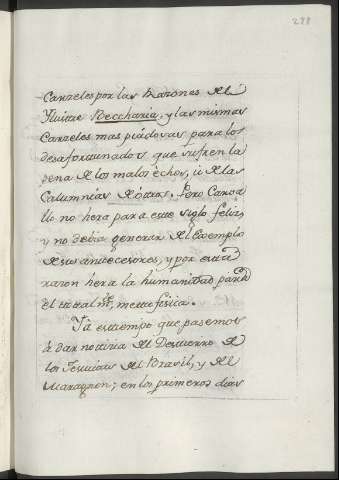 288
Carzeles por las Razones del
Ylustre Beccharia, y las mismas
Carzeles mas piadosas para los
desafortunados que sufren la
pena de los malos echos, ü de las
Calumnias de otros. Pero Carva
llo no hera para este siglo feliz,
y no debia generar del Exemplo
de sus antecesores, y por esta
razon hera la humanidad para
el total.te metafisica.
Yá es tiempo que pasemos
á dar noticia del Destierro de
los Jesuitas del Brasil, y del
Maragnon; en los primeros dias